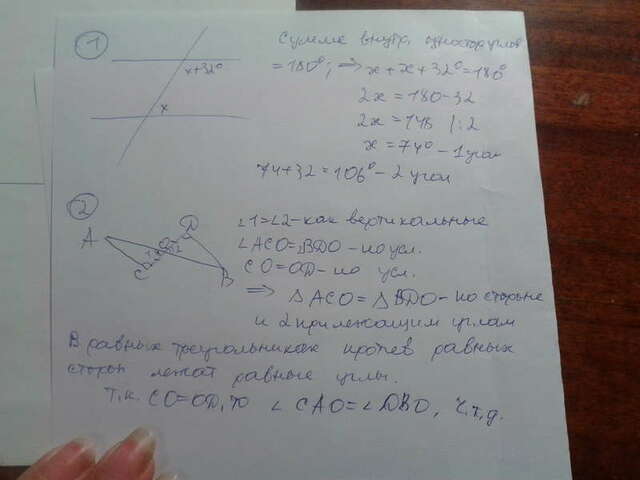 1
x+32°
x
Сумма внутр. односторуглов
=180°; => x+x+32°=180°
2x=180-32
2x=148 /:2
x=74° - 1угол
74+32=106° - 2 угол
2
A
D
O
1
2
C
B
∠1=∠2-как вертикальные
∠ACO=∠BDO-по усл.
CO=OD-по усл.
=> △ACO=△BDO-по стороне
и 2 прилежащим углам
В равных треугольниках против равных
сторон лежат равные углы.
Т.к. CO=OD, то ∠CAO=∠DBO, ч.т.д.